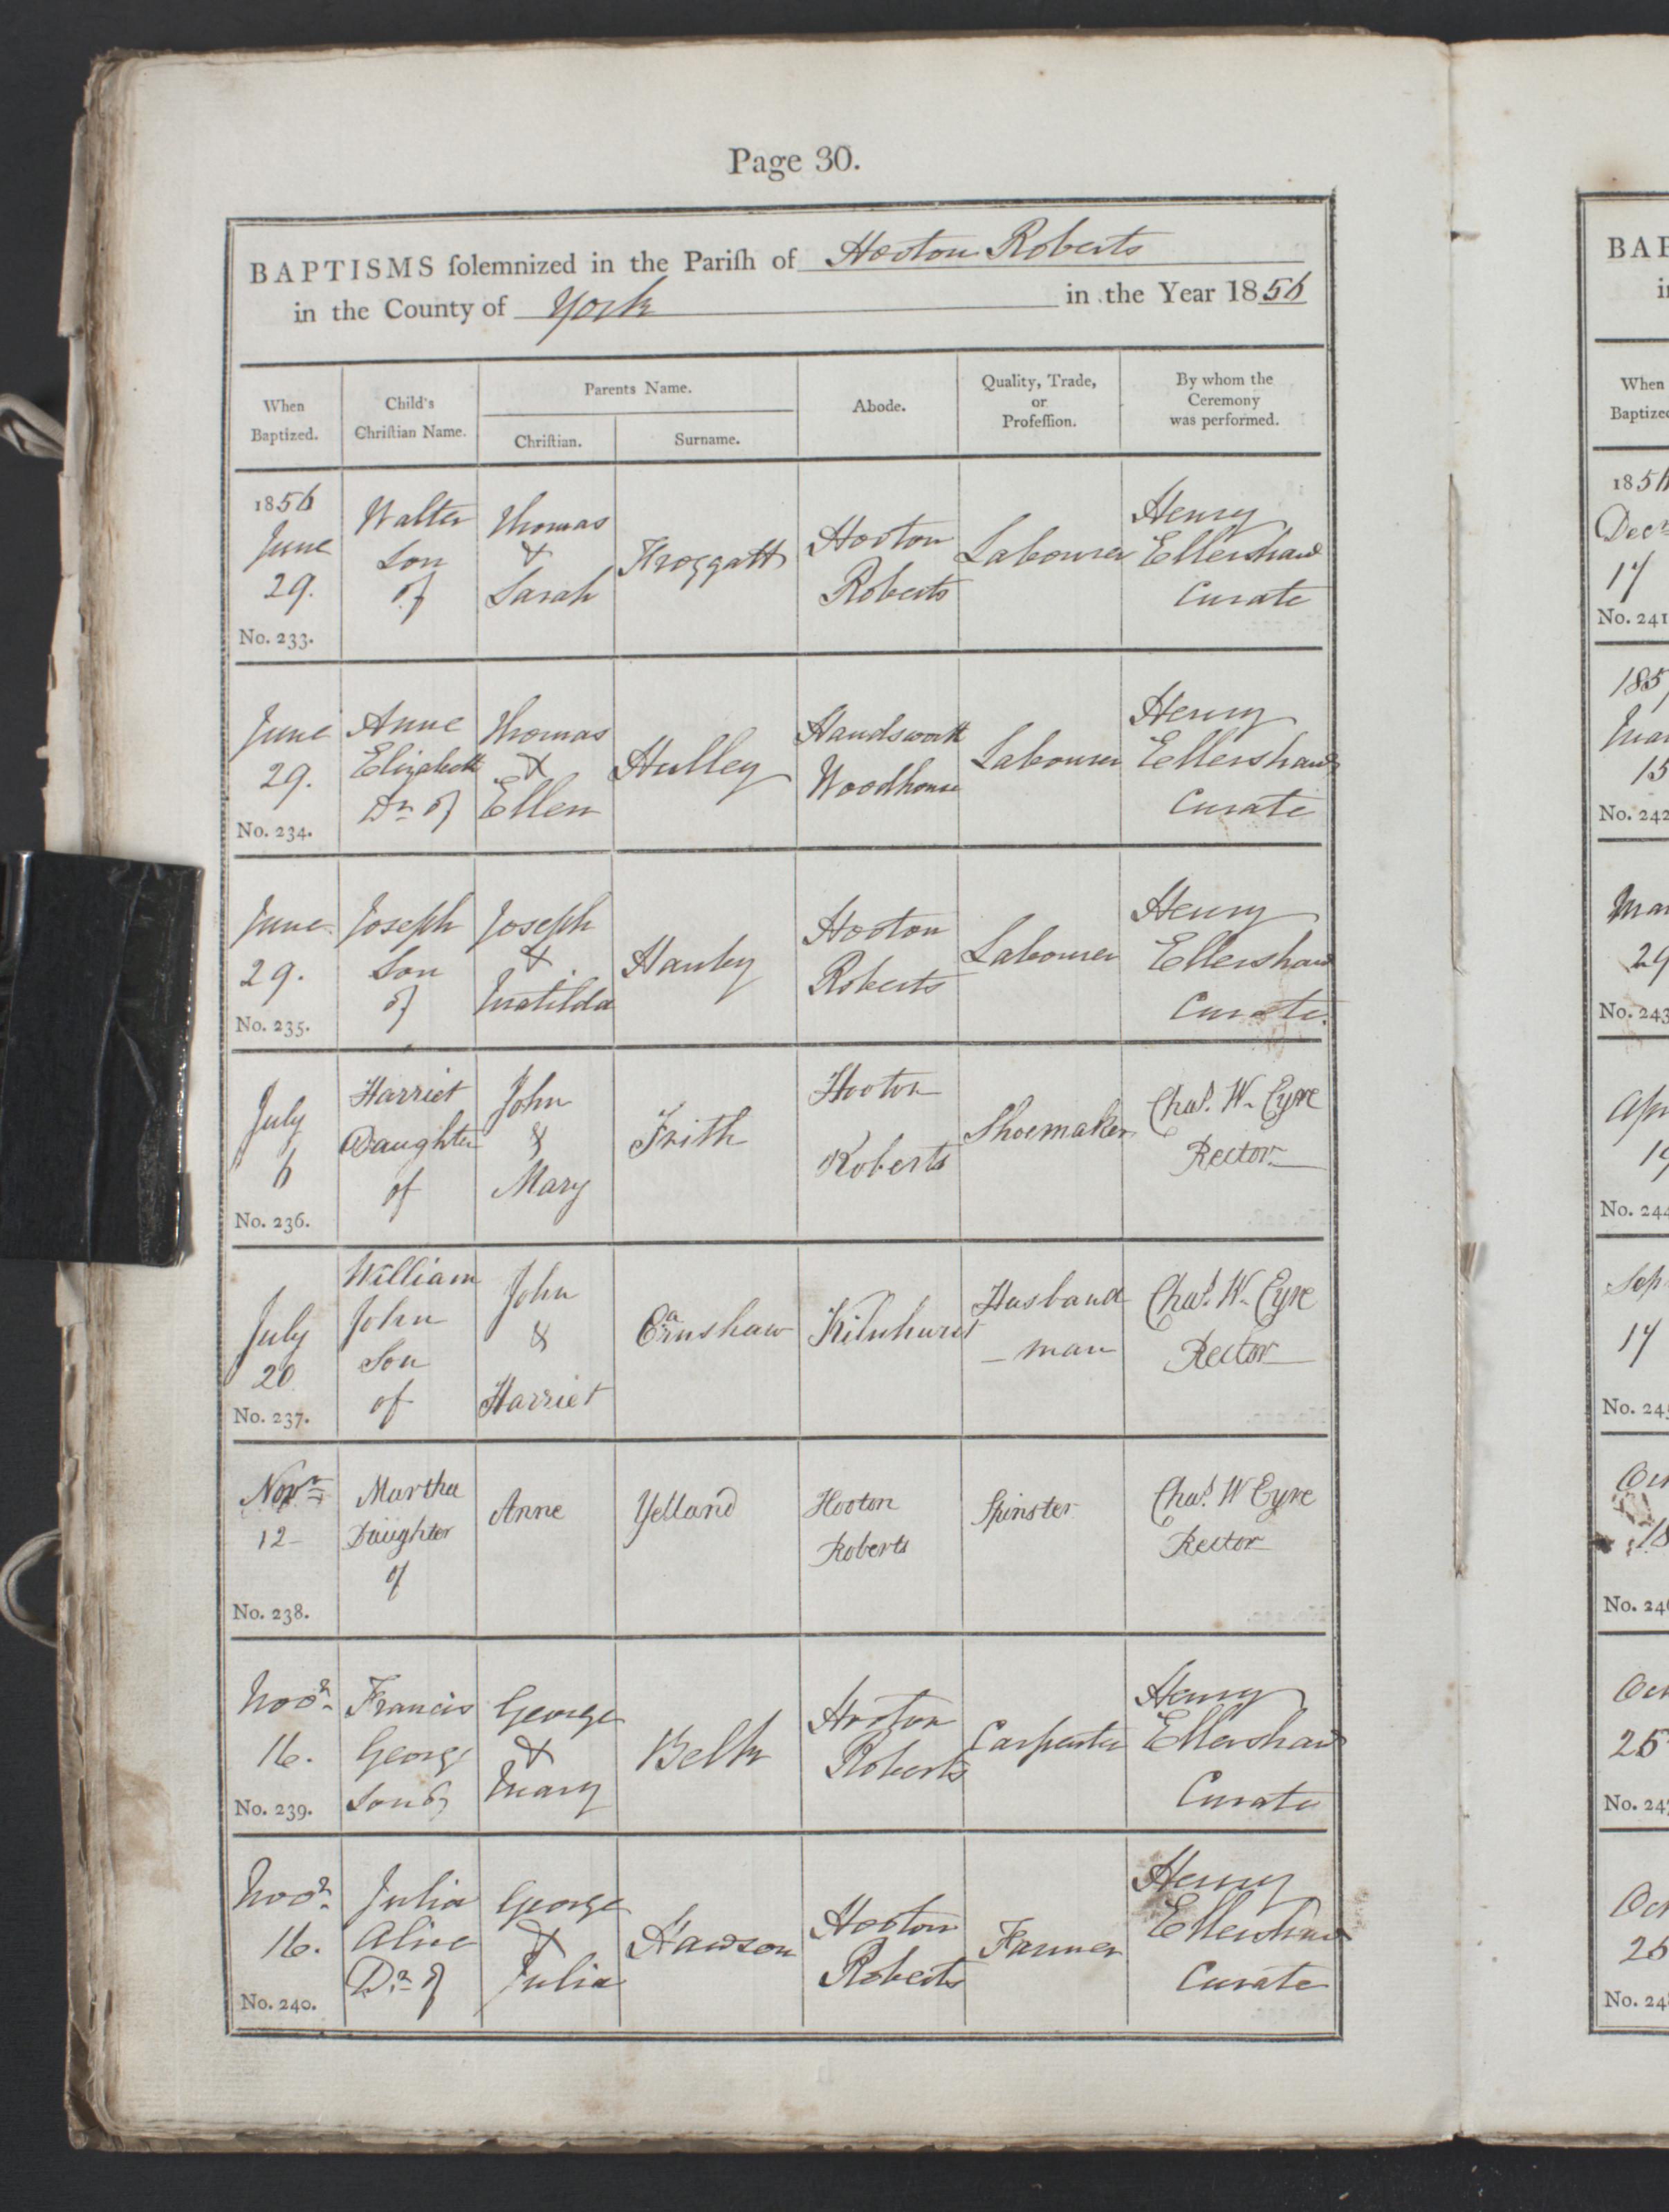 Page 30.
BAPTISMS ſolemnized in the Pariſh of Hooton Roberts
in the County of York in the Year 1856
When
Baptized.
Child's
Chriſtian Name.
Parents Name.
Chriſtian.
Surname.
Abode.
Quality, Trade,
or
Profeſſion.
By whom the
Ceremony
was performed.
1856
June
29.
No. 233.
Walter
Son
of
Thomas
&
Sarah
Froggatt
Hooton
Roberts
Labourer
Henry
Ellershaw
Curate
June
29.
No. 234.
Anne
Elizabeth
Dr. of
Thomas
&
Ellen
Hulley
Handsworth
Woodhouse
Labourer
Henry
Ellershaw
Curate
June
29.
No. 235.
Joseph
Son
of
Joseph
&
Matilda
Hanby
Hooton
Roberts
Labourer
Henry
Ellershaw
Curate.
July
6
No. 236.
Harriet
Daughter
of
John
&
Mary
Frith
Hooton
Roberts
Shoemaker
Chas. W. Eyre
Rector
July
20
No. 237.
William
John
Son
of
John
&
Harriet
Earnshaw
Kilnhurst
Husband
- man
Chas. W. Eyre
Rector
Novr
12-
No. 238.
Martha
Daughter
of
Anne
Yelland
Hooton
Roberts
Spinster
Chas. W Eyre
Rector
Novr.
16.
No. 239.
Francis
George
Son of
George
&
Mary
Belk
Hooton
Roberts
Carpenter
Henry
Ellershaw
Curate
Novr.
16.
No. 240.
Julia
Alice
Dr. of
George
&
Julia
Hawson
Hooton
Roberts
Farmer
Henry
Ellershaw
Curate
When
Baptized
Decr
17
No. 241
15
No. 242
29
No. 243
No. 244
17
25
26